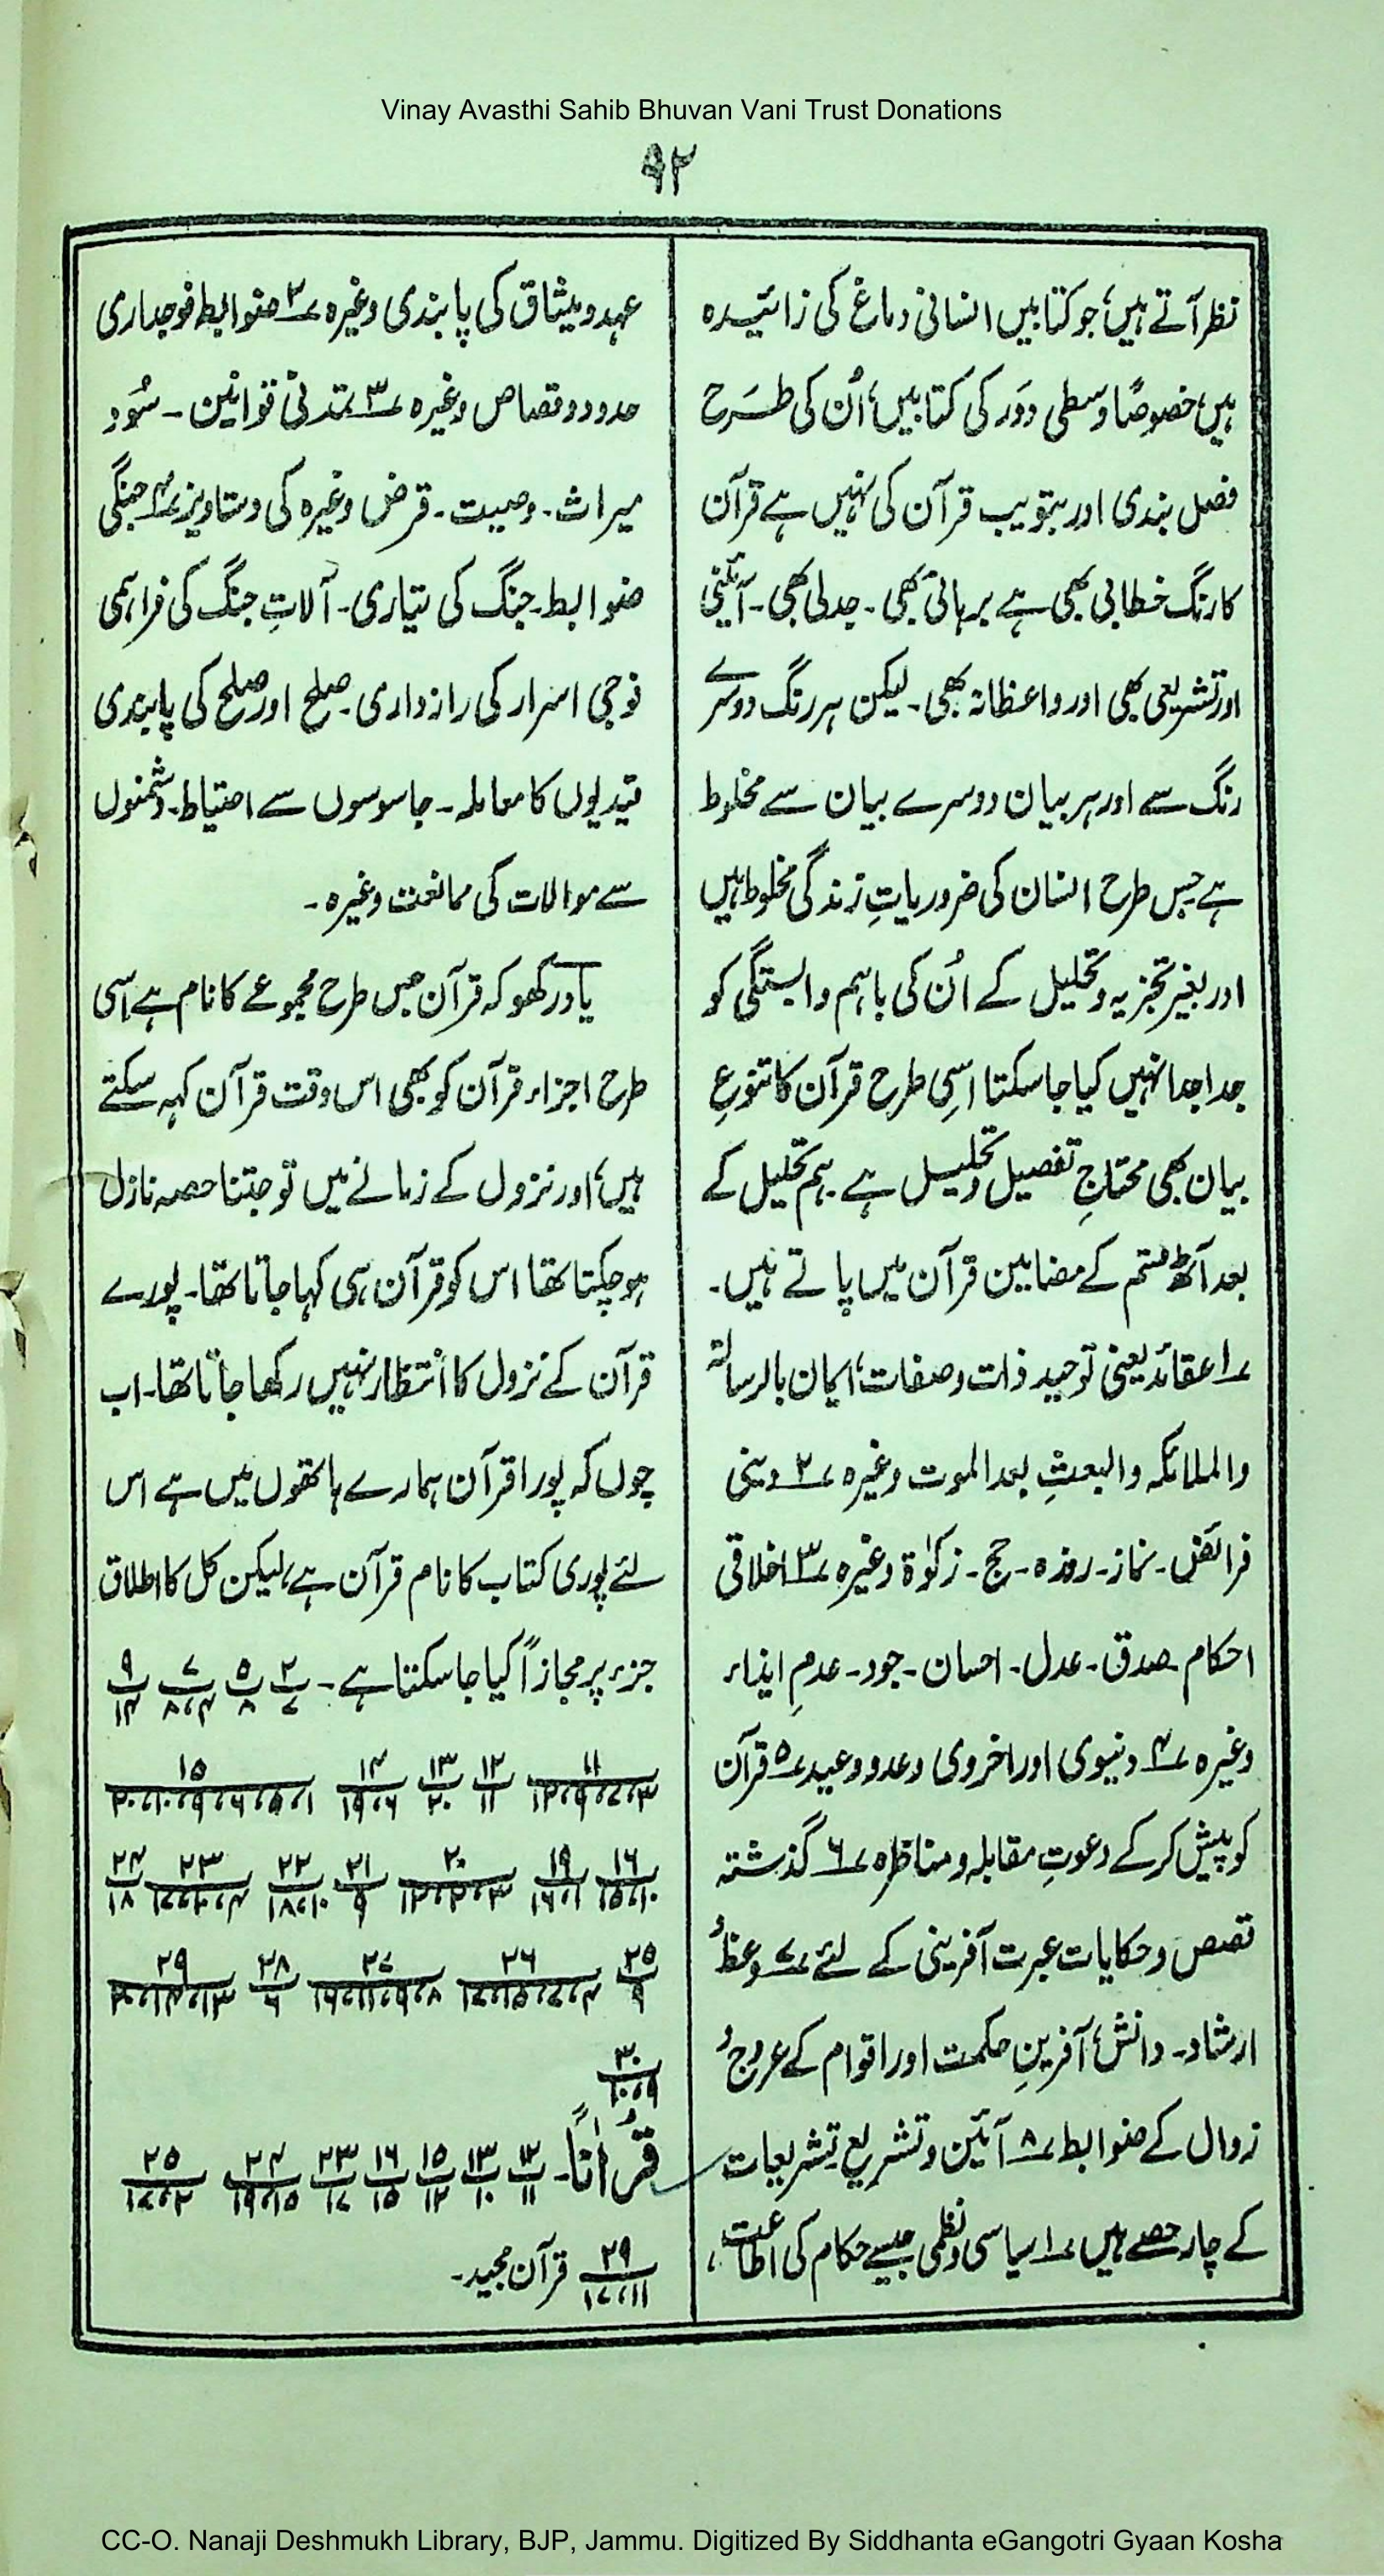 Vinay Avasthi Sahib Bhuvan Vani Trust Donations
۹۲
نظر آتے ہیں، جو کتابیں انسانی دماغ کی زائیدہ
ہیں، خصوصًا وسطی دَور کی کتابیں، اُن کی طرح
فصل بندی اور تبویب قرآن کی نہیں ہے قرآن
کا رنگ خطابی بھی ہے برہانی بھی۔ جدلی بھی۔ آئینی
اور تشریعی بھی اور واعظانہ بھی۔ لیکن ہر رنگ دوسرے
رنگ سے اور ہر بیان دوسرے بیان سے مخلوط
ہے جس طرح انسان کی ضروریاتِ زندگی مخلوط ہیں
اور بغیر تجزیہ و تحلیل کے اُن کی باہم وابستگی کو
جدا جدا نہیں کیا جا سکتا اسی طرح قرآن کا تنوعِ
بیان بھی محتاجِ تفصیل و تحلیل ہے۔ ہم تحلیل کے
بعد آٹھ قسم کے مضامین قرآن میں پاتے ہیں۔
۱؎ عقائد یعنی توحید ذات و صفات، ایمان بالرسالۃ
والملائکہ والبعثِ بعد الموت وغیرہ ۲؎ دینی
فرائض۔ نماز۔ روزہ۔ حج۔ زکوٰۃ وغیرہ ۳؎ اخلاقی
احکام۔ صدق۔ عدل۔ احسان۔ جود۔ عدمِ ایذاء
وغیرہ ۴؎ دنیوی اور اخروی وعد و وعید ۵؎ قرآن
کو پیش کر کے دعوتِ مقابلہ و مناظرہ ۶؎ گذشتہ
قصص و حکایات عبرت آفرینی کے لئے ۷؎ وعظ و
ارشاد۔ دانش آفرینِ حکمت اور اقوام کے عروج و
زوال کے ضوابط ۸؎ آئین و تشریع۔ تشریعات
کے چار حصے ہیں ۱؎ سیاسی و نظمی جیسے حکام کی اطاعت،
عہد و میثاق کی پابندی وغیرہ ۲؎ ضوابط فوجداری
حدود و قصاص وغیرہ ۳؎ تمدنی قوانین۔ سُود
میراث۔ وصیت۔ قرض وغیرہ کی دستاویز ۴؎ جنگی
ضوابط۔ جنگ کی تیاری۔ آلاتِ جنگ کی فراہمی
فوجی اسرار کی رازداری۔ صلح اور صلح کی پابندی
قیدیوں کا معاملہ۔ جاسوسوں سے احتیاط۔ دشمنوں
سے موالات کی ممانعت وغیرہ۔
یاد رکھو کہ قرآن جس طرح مجموعے کا نام ہے اسی
طرح اجزاء قرآن کو بھی اس وقت قرآن کہہ سکتے
ہیں، اور نزول کے زمانے میں تو جتنا حصہ نازل
ہو چکتا تھا اس کو قرآن ہی کہا جاتا تھا۔ پورے
قرآن کے نزول کا انتظار نہیں رکھا جاتا تھا۔ اب
چوں کہ پورا قرآن ہمارے ہاتھوں میں ہے اس
لئے پوری کتاب کا نام قرآن ہے، لیکن کل کا اطلاق
جزء پر مجازاً کیا جا سکتا ہے۔ ۲/۷ ۵/۸ ۷/۸،۴ ۹/۱۴
۱۱ ۱۲/۱۱ ۱۳/۲۰ ۱۴/۱۹،۶ ۱۵
۱۶/۱۵،۱۰ ۱۹/۱۶،۱ ۲۰/۱۲،۲،۳ ۲۱/۹ ۲۲/۱۸،۱۰ ۲۳ ۲۴/۱۸
۲۵/۹ ۲۶/۱۷،۱۵،۷،۴ ۲۷ ۲۸/۶ ۲۹/۲۰،۱۴،۱۳
۳۰/۱۰،۹
قُرْاٰنًا۔ ۱۲/۱۱ ۱۳/۱۰ ۱۵/۱۲ ۱۶/۱۵ ۲۳/۱۷ ۲۴/۱۹،۱۵ ۲۵/۱۷،۲
۲۹/۱۷،۱۱ قرآن مجید۔
CC-O. Nanaji Deshmukh Library, BJP, Jammu. Digitized By Siddhanta eGangotri Gyaan Kosha